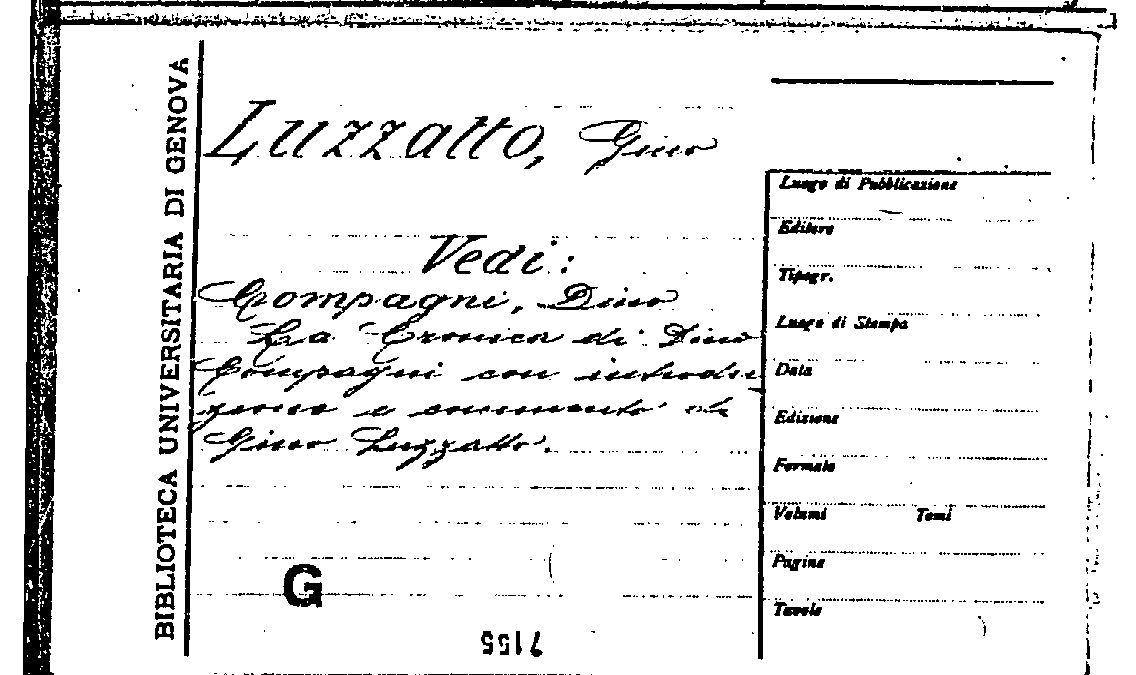 BIBLIOTECA UNIVERSITARIA DI GENOVA
Luzzatto, Gino
Vedi:
Compagni, Dino
La Cronica di Dino
Compagni con introdu
zione e commento di
Gino Luzzatto.
G
7155
Luogo di Pubblicazione
Editore
Tipogr.
Luogo di Stampa
Data
Edizione
Formato
Volumi Tomi
Pagine
Tavole